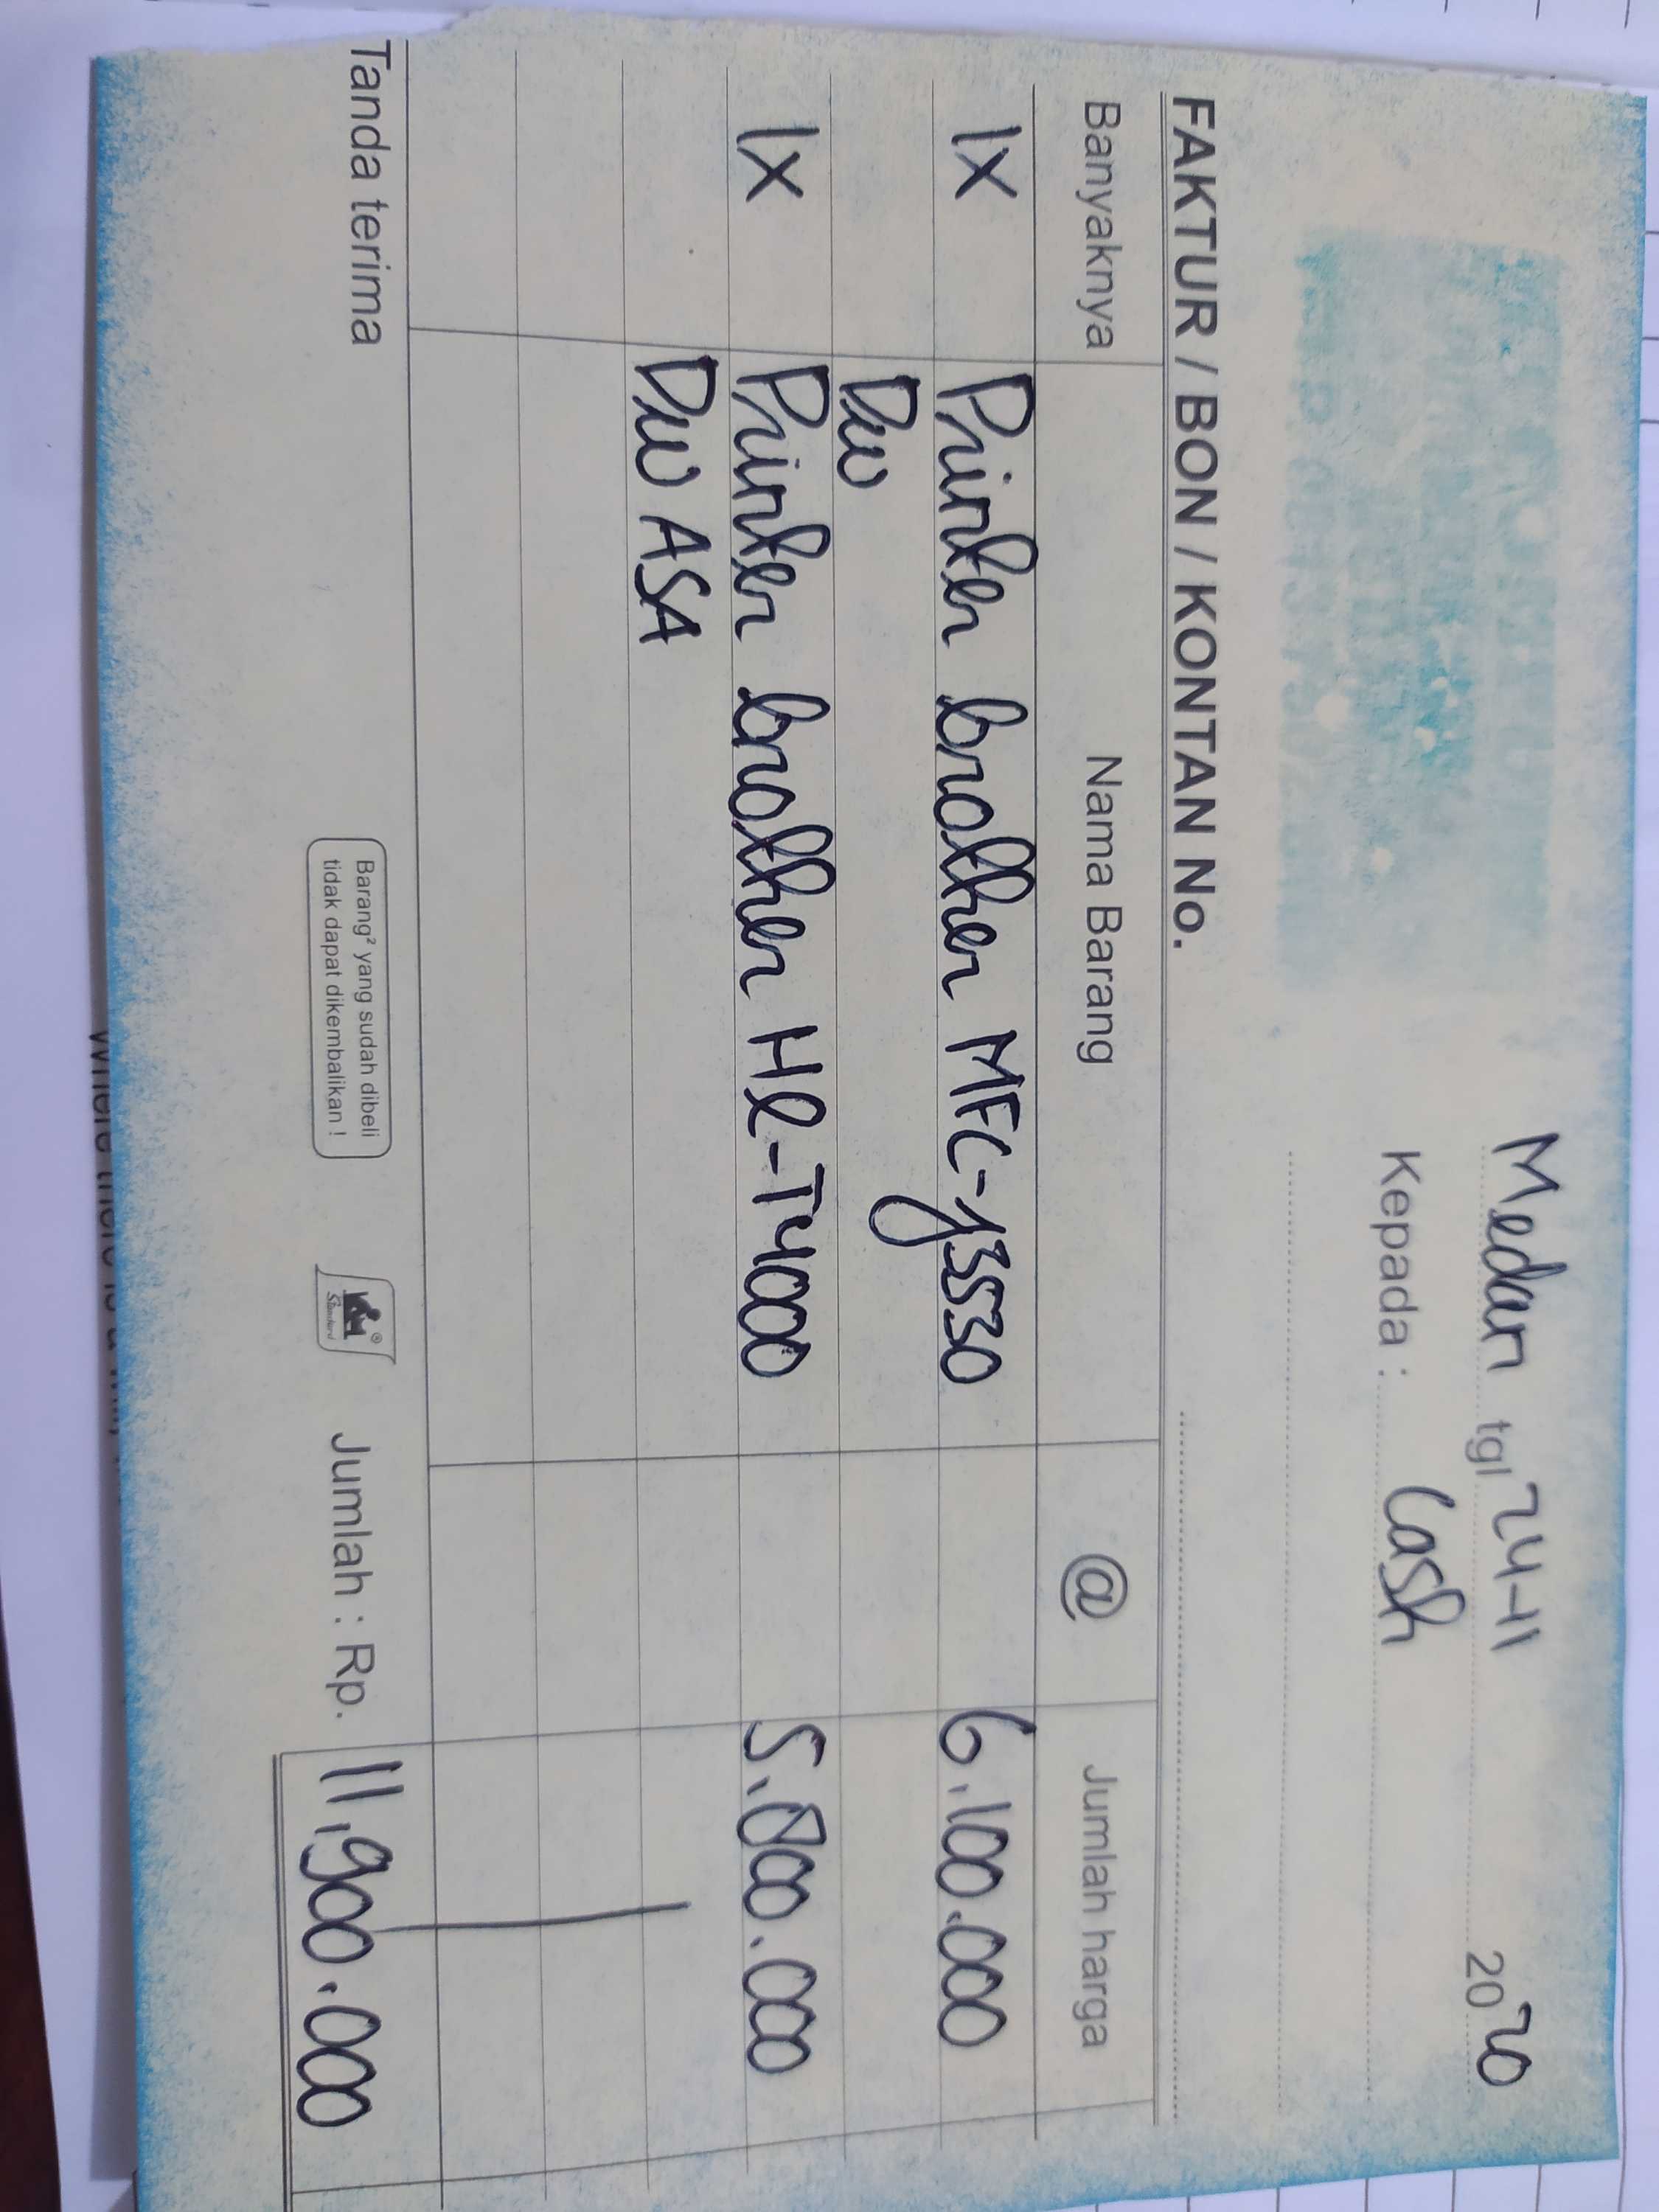 Medan tgl 24-11 2020
Kepada : Cash
FAKTUR / BON / KONTAN No.
Banyaknya Nama Barang @ Jumlah harga
1x Printer brother MFC-J3530 6.100.000
DW
1x Printer brother HL-T4000 5.800.000
DW ASA
Tanda terima
Barang² yang sudah dibeli
tidak dapat dikembalikan !
Standard
Jumlah : Rp. 11,900.000